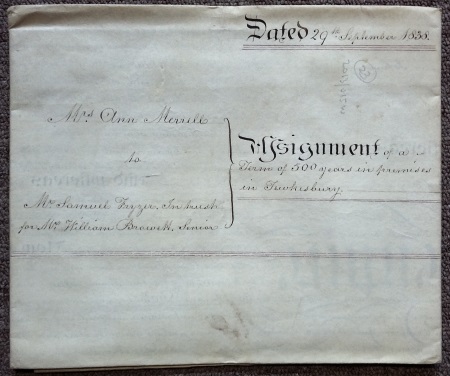 Dated 29th September 1838.
23
Mrs Ann Merrell
to
Mr Samuel Fryzer, In trust
for Mr William Browett, Senior
Assignment of a
Term of 500 years in premises
in Tewkesbury.